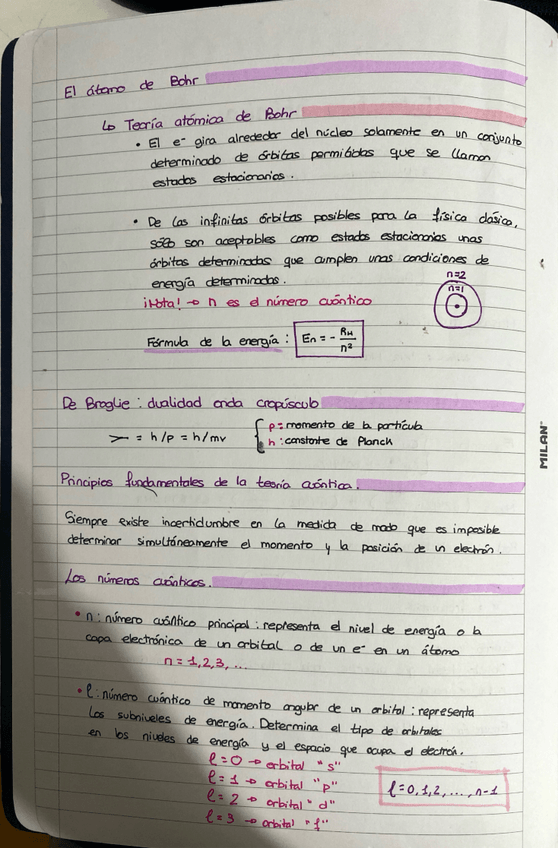 El átomo de Bohr
↳ Teoría atómica de Bohr
• El e⁻ gira alrededor del núcleo solamente en un conjunto
determinado de órbitas permitidas que se llaman
estados estacionarios.
• De las infinitas órbitas posibles para la física clásica,
sólo son aceptables como estados estacionarios unas
órbitas determinadas que cumplen unas condiciones de
energía determinadas.
n=2
n=1
¡Nota! → n es el número cuántico
Fórmula de la energía : En = - RH/n²
De Broglie : dualidad onda crepúsculo
λ = h/p = h/mv
p = momento de la partícula
h : constante de Planck
MILAN
Principios fundamentales de la teoría cuántica.
Siempre existe incertidumbre en la medida de modo que es imposible
determinar simultáneamente el momento y la posición de un electrón.
Los números cuánticos.
• n : número cuántico principal : representa el nivel de energía o la
capa electrónica de un orbital o de un e⁻ en un átomo
n = 1,2,3, ...
• l : número cuántico de momento angular de un orbital : representa
los subniveles de energía. Determina el tipo de orbitales
en los niveles de energía y el espacio que ocupa el electrón.
l = 0 → orbital "s"
l = 1 → orbital "p"
l = 2 → orbital "d"
l = 3 → orbital "f"
l = 0,1,2, ..., n-1